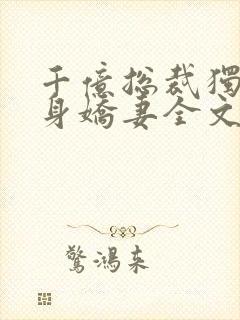 千億總裁獨
身嬌妻全文
驚鴻来